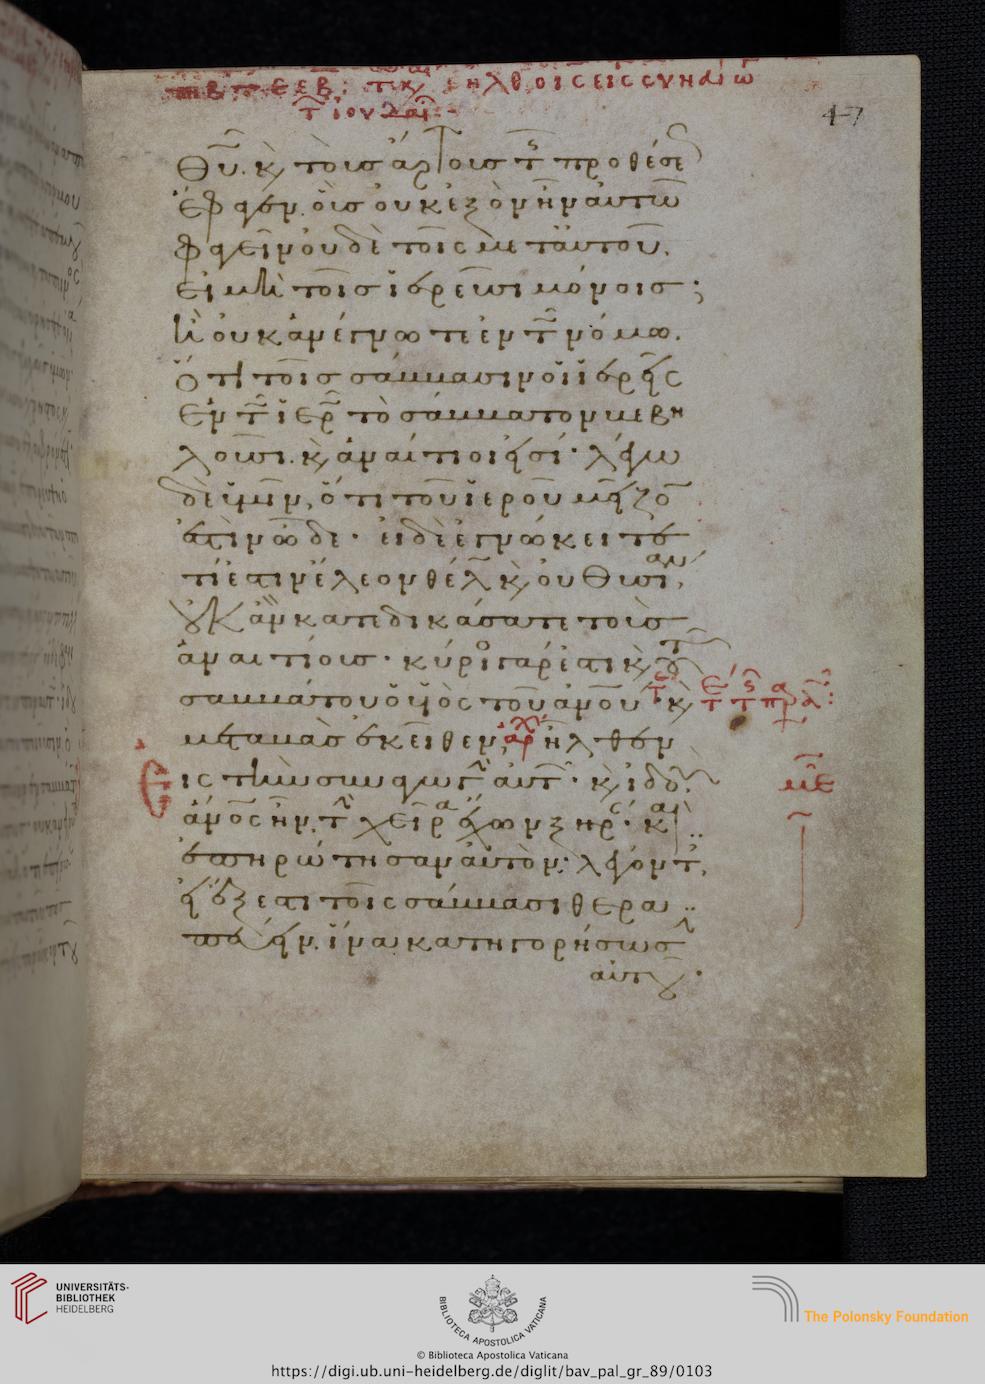 ηλθ ο ις εις συναγω
47
θυ. κ, τοὺς ἄρτους τ προθέσε
ἔφαγεν. οὓς οὐκ ἐξὸν ἦν αὐτῶ
φαγεῖν οὐδὲ τοῖς μετ' αὐτοῦ,
εἰ μὴ τοῖς ἱερεῦσι μόνοις;
ἢ οὐκ ἀνέγνωτε ἐν τ νόμω.
ὅτι τοῖς σάββασιν οἱ ἱερεῖς
ἐν τ ἱερ τὸ σάββατον βεβη
λοῦσι. κ, ἀναίτιοί εἰσί· λέγω
δὲ ὑμῖν, ὅτι τοῦ ἱεροῦ μεῖζο
ἐστὶν ὧδε· εἰ δὲ ἐγνώκειτε
τί ἐστιν ἔλεον θέλ κ, οὐ θυσίαν,
οὐκ ἂν κατεδικάσατε τοὺς
ἀναιτίους· κύριος γάρ ἐστι κ, τοῦ
σαββάτου ὁ υἱὸς τοῦ ἀνου· κ,
μεταβὰς ἐκεῖθεν, ἦλθεν
εἰς τὴν συναγωγὴν αὐτ· κ, ἰδοὺ
ἄνος ἦν τ χεῖρα ἔχων ξηρ· καὶ
ἐπηρώτησαν αὐτὸν· λέγοντ,
εἰ ἔξεστι τοῖς σάββασι θερα
πεύειν. ἵνα κατηγορήσωσ
αὐτοῦ·
ΜΕ
UNIVERSITÄTS-
BIBLIOTHEK
HEIDELBERG
BIBLIOTECA APOSTOLICA VATICANA
The Polonsky Foundation
© Biblioteca Apostolica Vaticana
https://digi.ub.uni-heidelberg.de/diglit/bav_pal_gr_89/0103